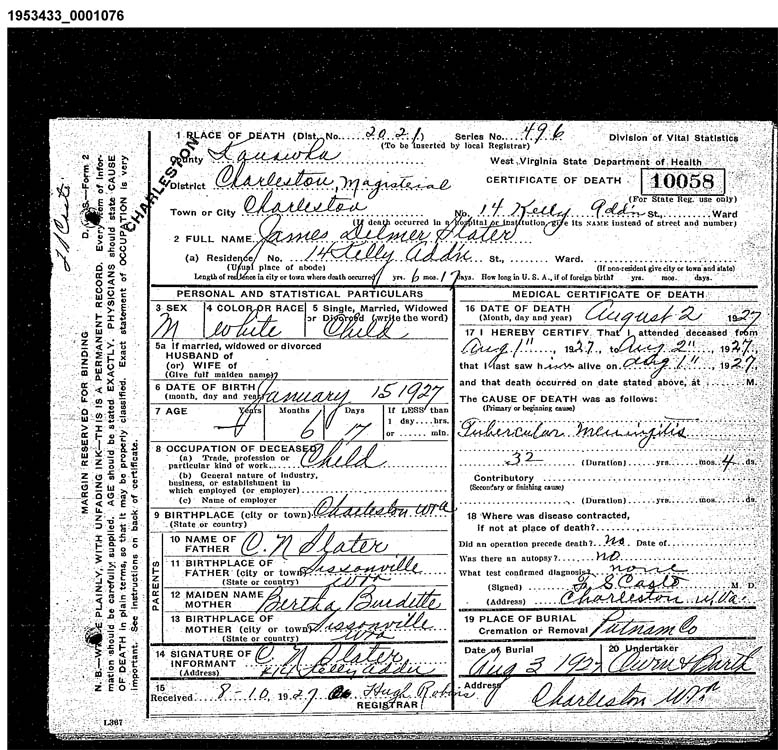 1953433_0001076
1 PLACE OF DEATH (Dist. No. 2021) Series No. 496 Division of Vital Statistics
(To be inserted by local Registrar)
County Kanawha West Virginia State Department of Health
CHARLESTON
District Charleston, Magisterial CERTIFICATE OF DEATH 10058
(For State Reg. use only)
Town or City Charleston No. 14 Kelly Addn St., Ward
(If death occurred in a hospital or institution, give its NAME instead of street and number)
2 FULL NAME James Delmer Slater
(a) Residence, No. 14 Kelly Addn St., Ward.
(Usual place of abode) (If non-resident give city or town and state)
Length of residence in city or town where death occurred yrs. 6 mos. 17 days. How long in U. S. A., if of foreign birth? yrs. mos. days.
PERSONAL AND STATISTICAL PARTICULARS
3 SEX M
4 COLOR OR RACE white
5 Single, Married, Widowed or Divorced (write the word) Child
5a If married, widowed or divorced
HUSBAND of
(or) WIFE of
(Give full maiden name)
6 DATE OF BIRTH January 15 1927
(month, day and year)
7 AGE Years Months 6 Days 17 If LESS than 1 day....hrs. or ...... min.
8 OCCUPATION OF DECEASED
(a) Trade, profession or particular kind of work Child
(b) General nature of industry, business, or establishment in which employed (or employer)
(c) Name of employer
9 BIRTHPLACE (city or town) Charleston W Va
(State or country)
PARENTS
10 NAME OF FATHER C. N Slater
11 BIRTHPLACE OF FATHER (city or town) Sissonville
(State or country) W Va
12 MAIDEN NAME MOTHER Bertha Burdette
13 BIRTHPLACE OF MOTHER (city or town) Sissonville
(State or country) W Va
14 SIGNATURE OF INFORMANT C N Slater
(Address) #14 Kelly Addn
15 Received 8-10, 1927 Hugh Robins
REGISTRAR
MEDICAL CERTIFICATE OF DEATH
16 DATE OF DEATH August 2 1927
(Month, day and year)
17 I HEREBY CERTIFY That I attended deceased from
Aug 1", 1927, to Aug 2", 1927,
that I last saw him alive on Aug 1", 1927,
and that death occurred on date stated above, at M.
The CAUSE OF DEATH was as follows:
(Primary or beginning cause)
Tubercular Meningitis
32 (Duration) yrs. mos. 4 ds.
Contributory
(Secondary or finishing cause)
(Duration) yrs. mos. ds.
18 Where was disease contracted,
if not at place of death?
Did an operation precede death? No Date of
Was there an autopsy? no
What test confirmed diagnosis? none
(Signed) M. D.
(Address) Charleston W Va.
19 PLACE OF BURIAL
Cremation or Removal Putnam Co
Date of Burial Aug 3 1927
20 Undertaker
Address Charleston W Va
MARGIN RESERVED FOR BINDING
N. B.—WRITE PLAINLY, WITH UNFADING INK—THIS IS A PERMANENT RECORD. Every item of information should be carefully supplied. AGE should be stated EXACTLY. PHYSICIANS should state CAUSE OF DEATH in plain terms, so that it may be properly classified. Exact statement of OCCUPATION is very important. See instructions on back of certificate.
Form 2
L367